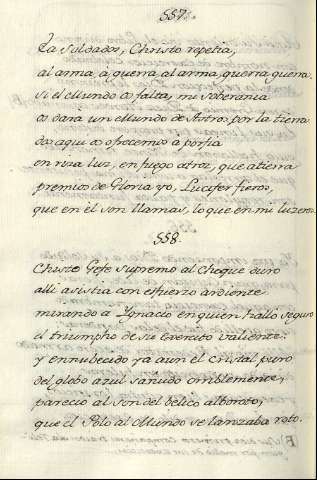 557.
Ea Soldados, Christo repetia,
al arma, à guerra, al arma, guerra guerra.
si el Mundo os falta, mi Soberania
os dara un Mundo de Astros por la tierra
dos aqui os ofrecemos à porfia
en viva luz, en fuego atroz, que atierra
premios de Gloria yo, Lucifer fieros,
que en èl son llamas, lo que en mi luzeros.
558.
Christo Gefe supremo al choque duro
alli asistia con esfuerzo ardiente
mirando à Ygnacio en quien hallò seguro
el triumpho de su Exercito valiente:
y ennubecido ya aun el cristal puro
del globo azul sañudo orriblemente,
pareciò al son del belico alboroto,
que el Polo al Mundo se lanzaba roto.